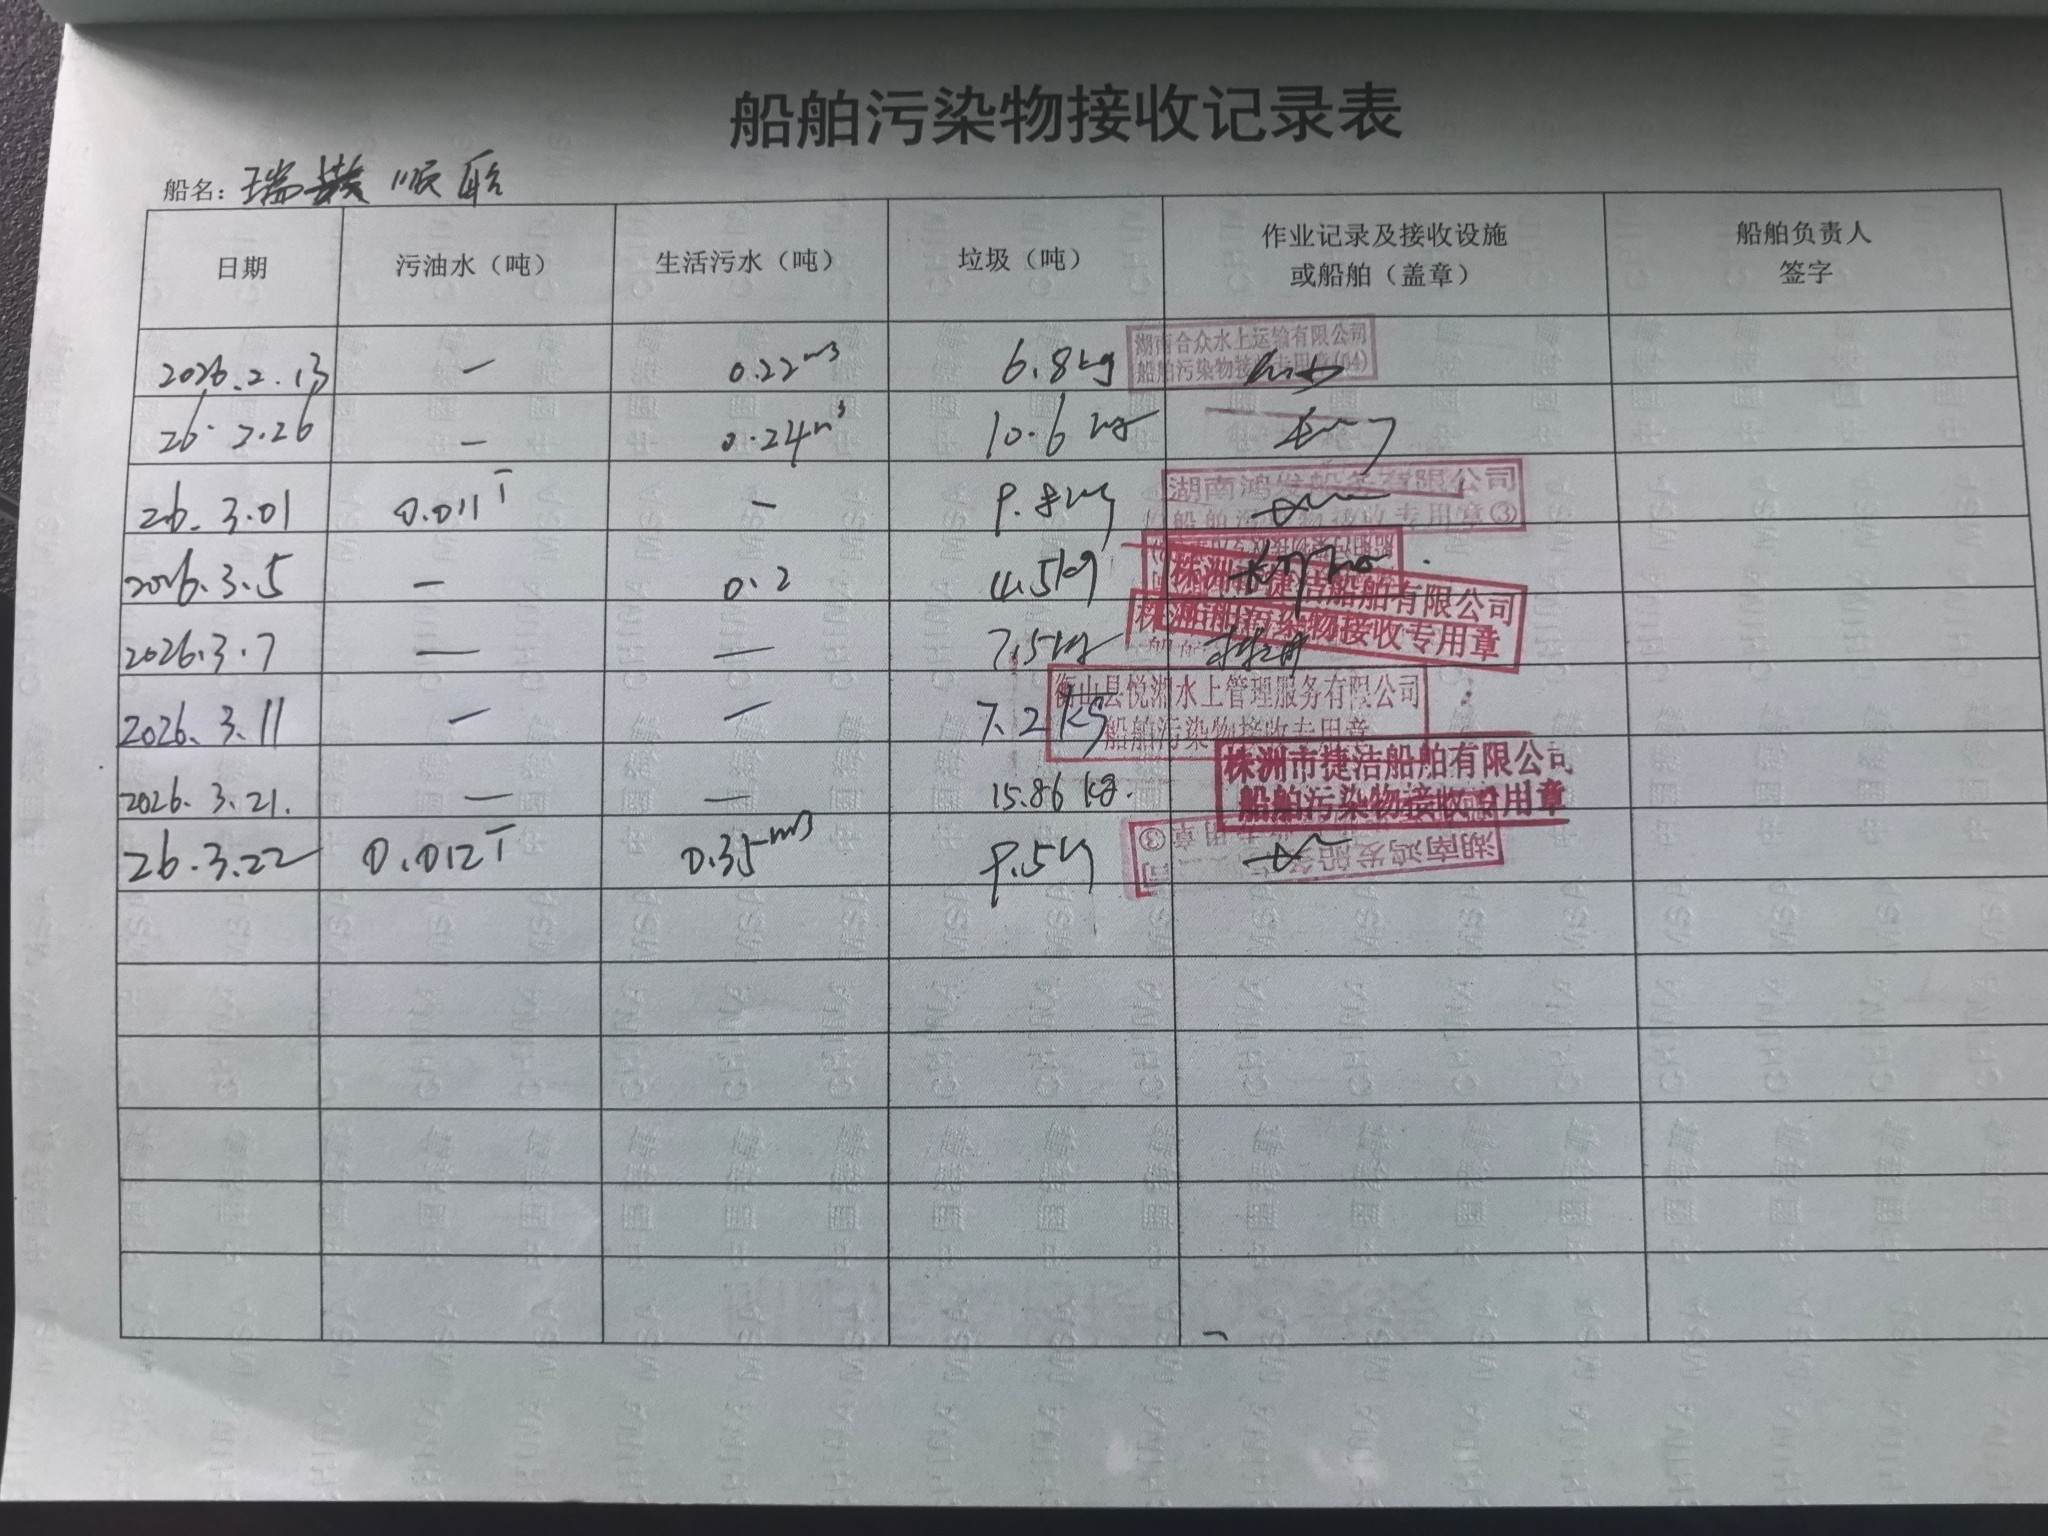 船舶污染物接收记录表
船名：瑞 顺船
日期 污油水（吨） 生活污水（吨） 垃圾（吨） 作业记录及接收设施或船舶（盖章） 船舶负责人签字
2026.2.13 — 0.22m3 6.8kg
湖南合众水上运输有限公司
船舶污染物接收专用章(04)
26.2.26 — 0.24m3 10.6kg
26.3.01 0.011T — 9.8kg
湖南鸿发船务有限公司
船舶污染物接收专用章③
2026.3.5 — 0.2 4.5kg
株洲市捷洁船舶有限公司
船舶污染物接收专用章
2026.3.7 — — 7.5kg
2026.3.11 — — 7.2kg
衡山县悦湘水上管理服务有限公司
船舶污染物接收专用章
2026.3.21. — — 15.86kg.
株洲市捷洁船舶有限公司
船舶污染物接收专用章
26.3.22 0.012T 0.35m3 9.5kg
湖南鸿发船务